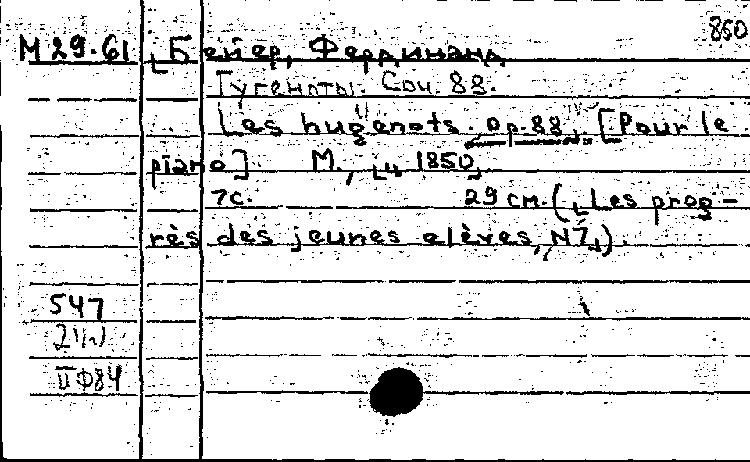 850
М 29.61 Бейер, Фердинанд
Гугеноты. Соч. 88.
Les hugenots. op.88, [Pour le
piano] М., [ц 1850]
7с. 29 см. (Les prog-
rès des jeunes elèves, N7).
547
II Ф84